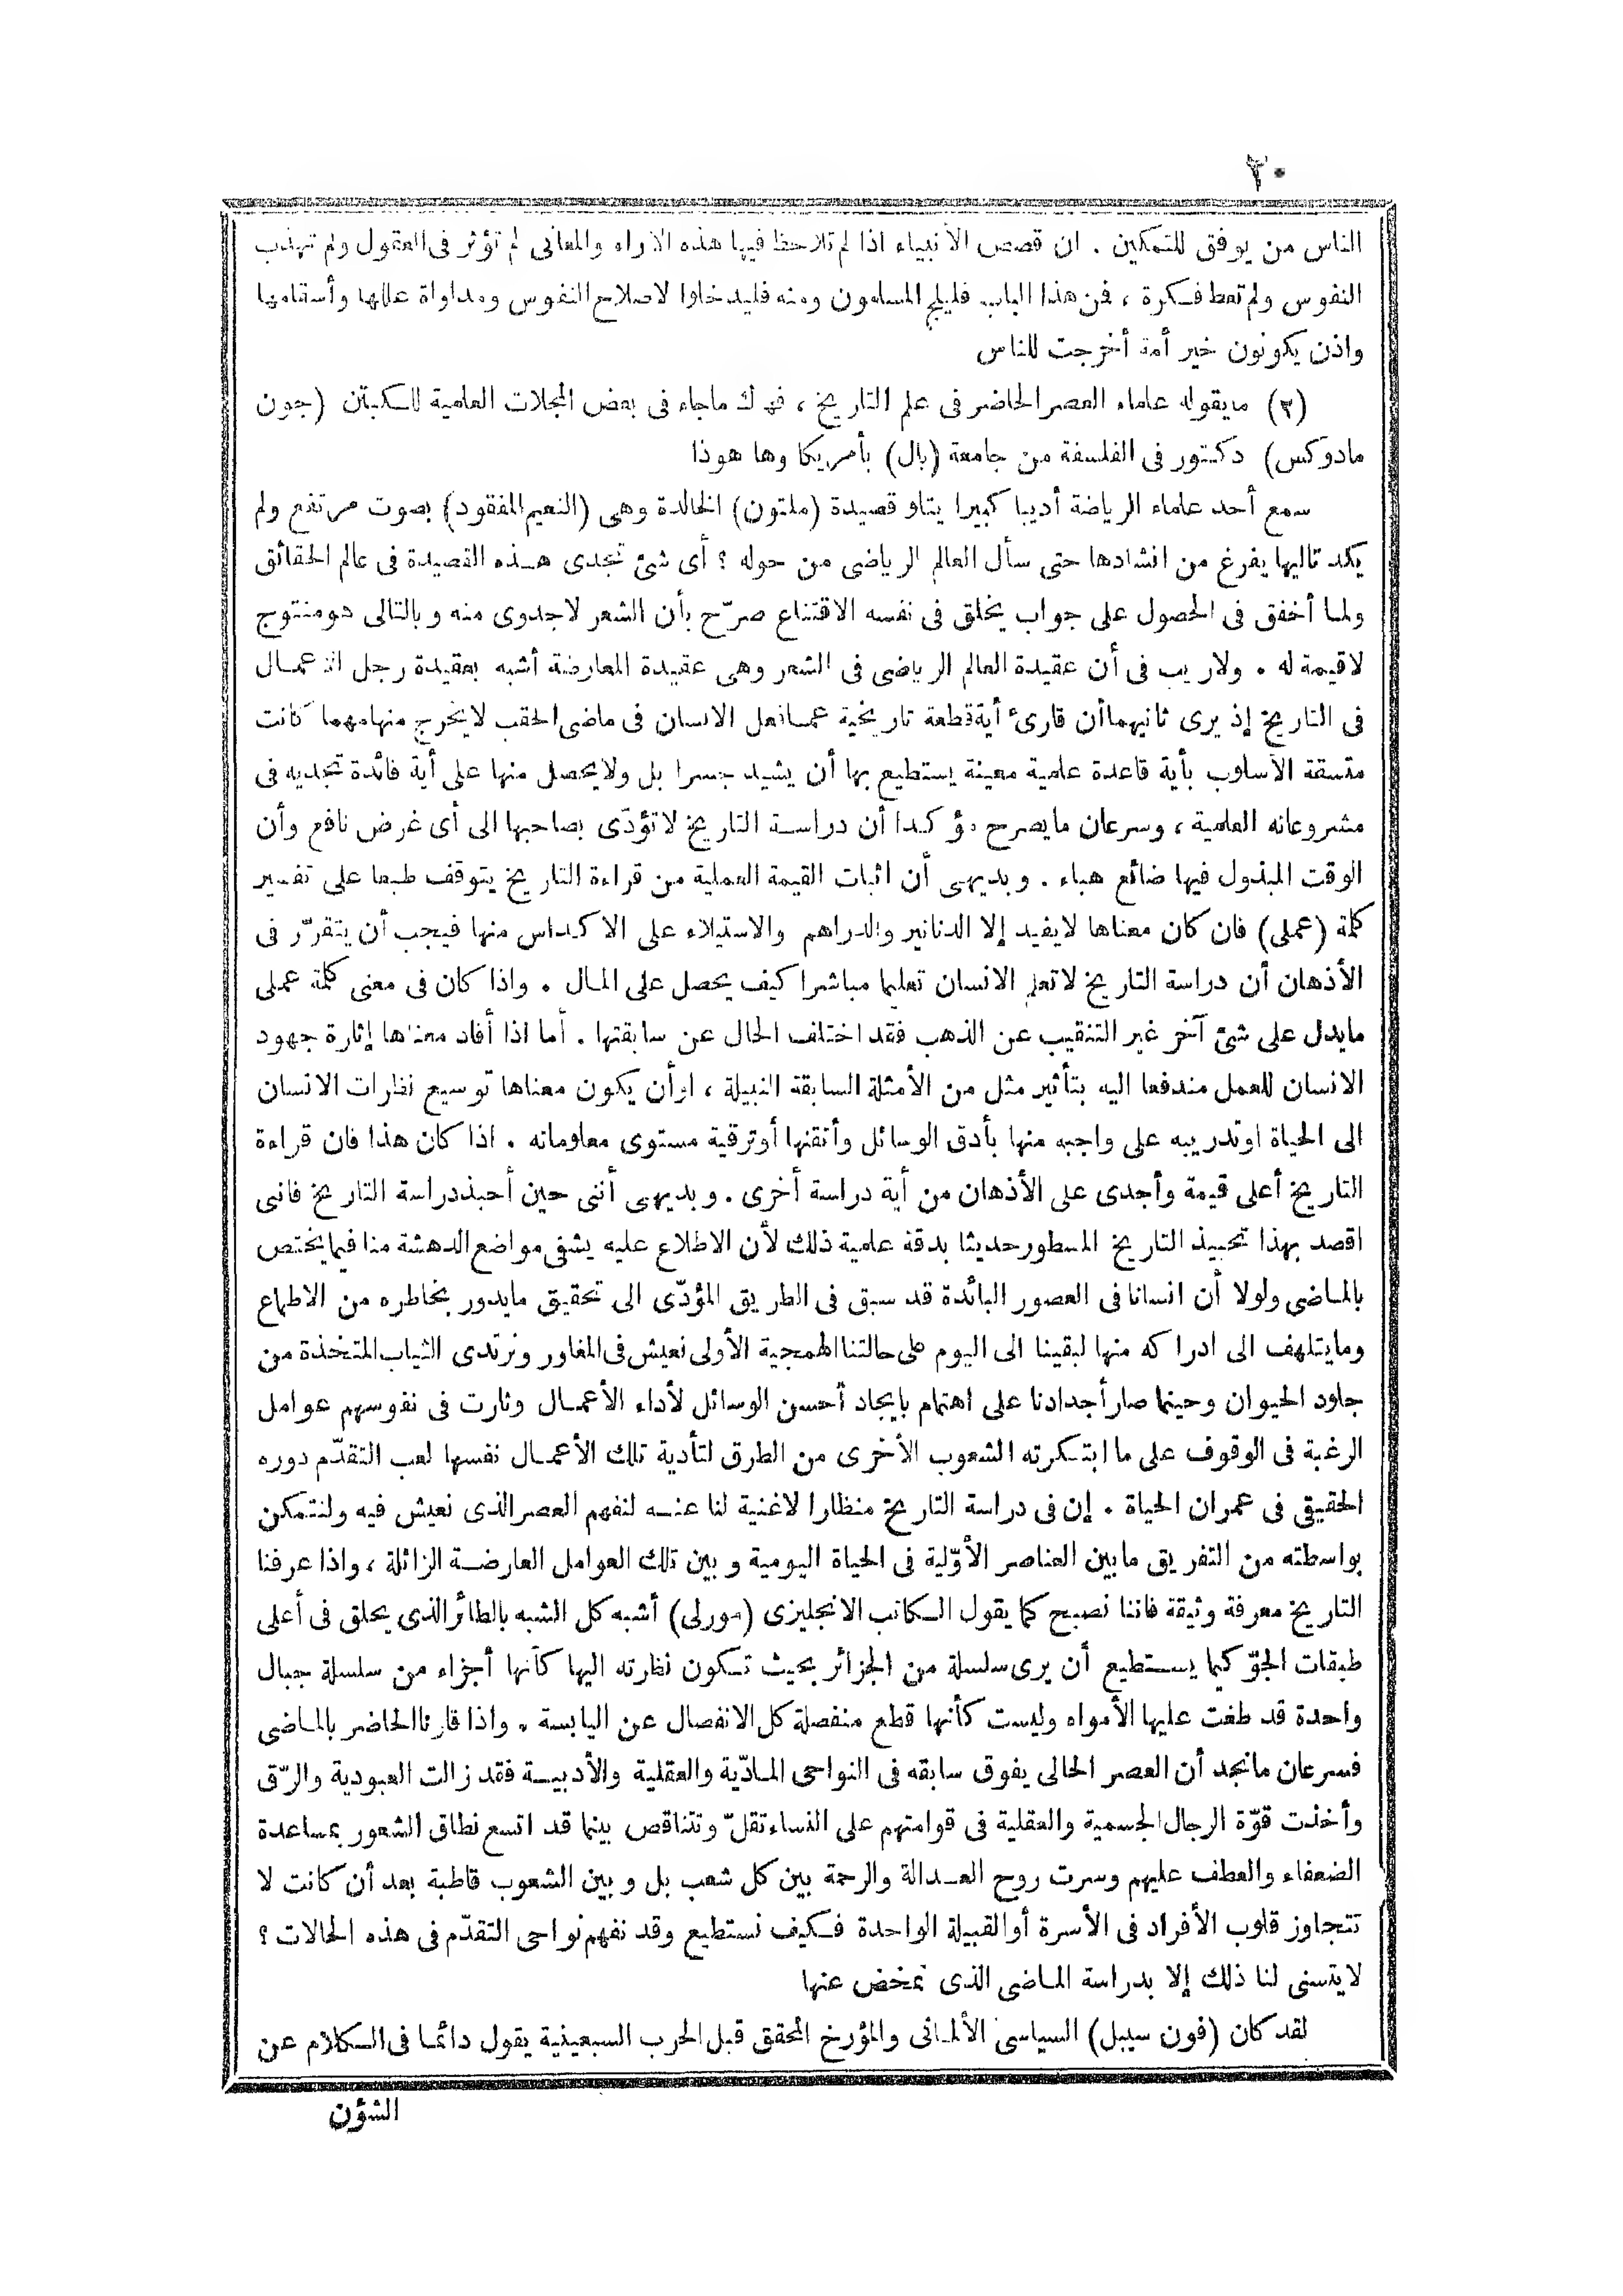 ٢٠
الناس من يوفق للتمكين . ان قصص الأنبياء اذا لم تلاحظ فيها هذه الآراء والمعانى لم تؤثر فى العقول ولم تهذب
النفوس ولم تعط فكرة ، فمن هذا الباب فليلج المسلمون ومنه فليدخلوا لاصلاح النفوس ومداواة عللها وأسقامها
واذن يكونون خير أمة أخرجت للناس
(٢) مايقوله علماء العصر الحاضر فى علم التاريخ ، فهاك ماجاء فى بعض المجلات العلمية للكبتن (جون
مادوكس) دكتور فى الفلسفة من جامعة (بال) بأمريكا وها هوذا
سمع أحد علماء الرياضة أديبا كبيرا يتلو قصيدة (ملتون) الخالدة وهى (النعيم المفقود) بصوت مرتفع ولم
يكد تاليها يفرغ من انشادها حتى سأل العالم الرياضى من حوله ؟ أى شئ تجدى هذه القصيدة فى عالم الحقائق
ولما أخفق فى الحصول على جواب يخلق فى نفسه الاقتناع صرّح بأن الشعر لاجدوى منه وبالتالى هو منتوج
لاقيمة له . ولاريب فى أن عقيدة العالم الرياضى فى الشعر وهى عقيدة المعارضة أشبه بعقيدة رجل الاعمال
فى التاريخ إذ يرى ثانيهما أن قارئ أية قطعة تاريخية عما فعل الانسان فى ماضى الحقب لايخرج منها مهما كانت
متسقة الأسلوب بأية قاعدة علمية معينة يستطيع بها أن يشيد جسرا بل ولايحصل منها على أية فائدة تجديه فى
مشروعاته العلمية ، وسرعان مايصرح مؤكدا أن دراسة التاريخ لاتؤدّى بصاحبها الى أى غرض نافع وأن
الوقت المبذول فيها ضائع هباء . وبديهى أن اثبات القيمة العملية من قراءة التاريخ يتوقف طبعا على تفسير
كلمة (عملى) فان كان معناها لايفيد إلا الدنانير والدراهم والاستيلاء على الاكداس منها فيجب أن يتقرّر فى
الأذهان أن دراسة التاريخ لاتعلم الانسان تعليما مباشرا كيف يحصل على المال . واذا كان فى معنى كلمة عملى
مايدل على شئ آخر غير التنقيب عن الذهب فقد اختلف الحال عن سابقتها . أما اذا أفاد معناها إثارة جهود
الانسان للعمل مندفعا اليه بتأثير مثل من الأمثلة السابقة النبيلة ، او أن يكون معناها توسيع نظرات الانسان
الى الحياة اوتدريبه على واجبه منها بأدق الوسائل وأتقنها أوترقية مستوى معلوماته . اذا كان هذا فان قراءة
التاريخ أعلى قيمة وأجدى على الأذهان من أية دراسة أخرى . وبديهى أننى حين أحبذ دراسة التاريخ فانى
اقصد بهذا تحبيذ التاريخ المسطور حديثا بدقة علمية ذلك لأن الاطلاع عليه يشفى مواضع الدهشة منا فيما يختص
بالماضى ولولا أن انسانا فى العصور البائدة قد سبق فى الطريق المؤدّى الى تحقيق مايدور بخاطره من الاطماع
ومايتلهف الى ادراكه منها لبقينا الى اليوم على حالتنا الهمجية الأولى نعيش فى المغاور ونرتدى الثياب المتخذة من
جلود الحيوان وحينما صار أجدادنا على اهتمام بايجاد أحسن الوسائل لأداء الأعمال وثارت فى نفوسهم عوامل
الرغبة فى الوقوف على ما ابتكرته الشعوب الأخرى من الطرق لتأدية تلك الأعمال نفسها لعب التقدّم دوره
الحقيقى فى عمران الحياة . إن فى دراسة التاريخ منظارا لاغنية لنا عنه لنفهم العصر الذى نعيش فيه ولنتمكن
بواسطته من التفريق مابين العناصر الأوّلية فى الحياة اليومية وبين تلك العوامل العارضة الزائلة ، واذا عرفنا
التاريخ معرفة وثيقة فاننا نصبح كما يقول الكاتب الانجليزى (مورلى) أشبه كل الشبه بالطائر الذى يحلق فى أعلى
طبقات الجوّ كيما يستطيع أن يرى سلسلة من الجزائر بحيث تكون نظرته اليها كأنها أجزاء من سلسلة جبال
واحدة قد طغت عليها الأمواه وليست كأنها قطع منفصلة كل الانفصال عن اليابسة . واذا قارنا الحاضر بالماضى
فسرعان مانجد أن العصر الحالى يفوق سابقه فى النواحى المادّية والعقلية والأدبية فقد زالت العبودية والرّق
وأخذت قوّة الرجال الجسمية والعقلية فى قوامتهم على النساء تقلّ وتتناقص بينما قد اتسع نطاق الشعور بمساعدة
الضعفاء والعطف عليهم وسرت روح العدالة والرحمة بين كل شعب بل وبين الشعوب قاطبة بعد أن كانت لا
تتجاوز قلوب الأفراد فى الأسرة أوالقبيلة الواحدة فكيف نستطيع وقد نفهم نواحى التقدّم فى هذه الحالات ؟
لايتسنى لنا ذلك إلا بدراسة الماضى الذى تمخض عنها
لقد كان (فون سيبل) السياسى الألمانى والمؤرخ المحقق قبل الحرب السبعينية يقول دائما فى الكلام عن
الشؤن